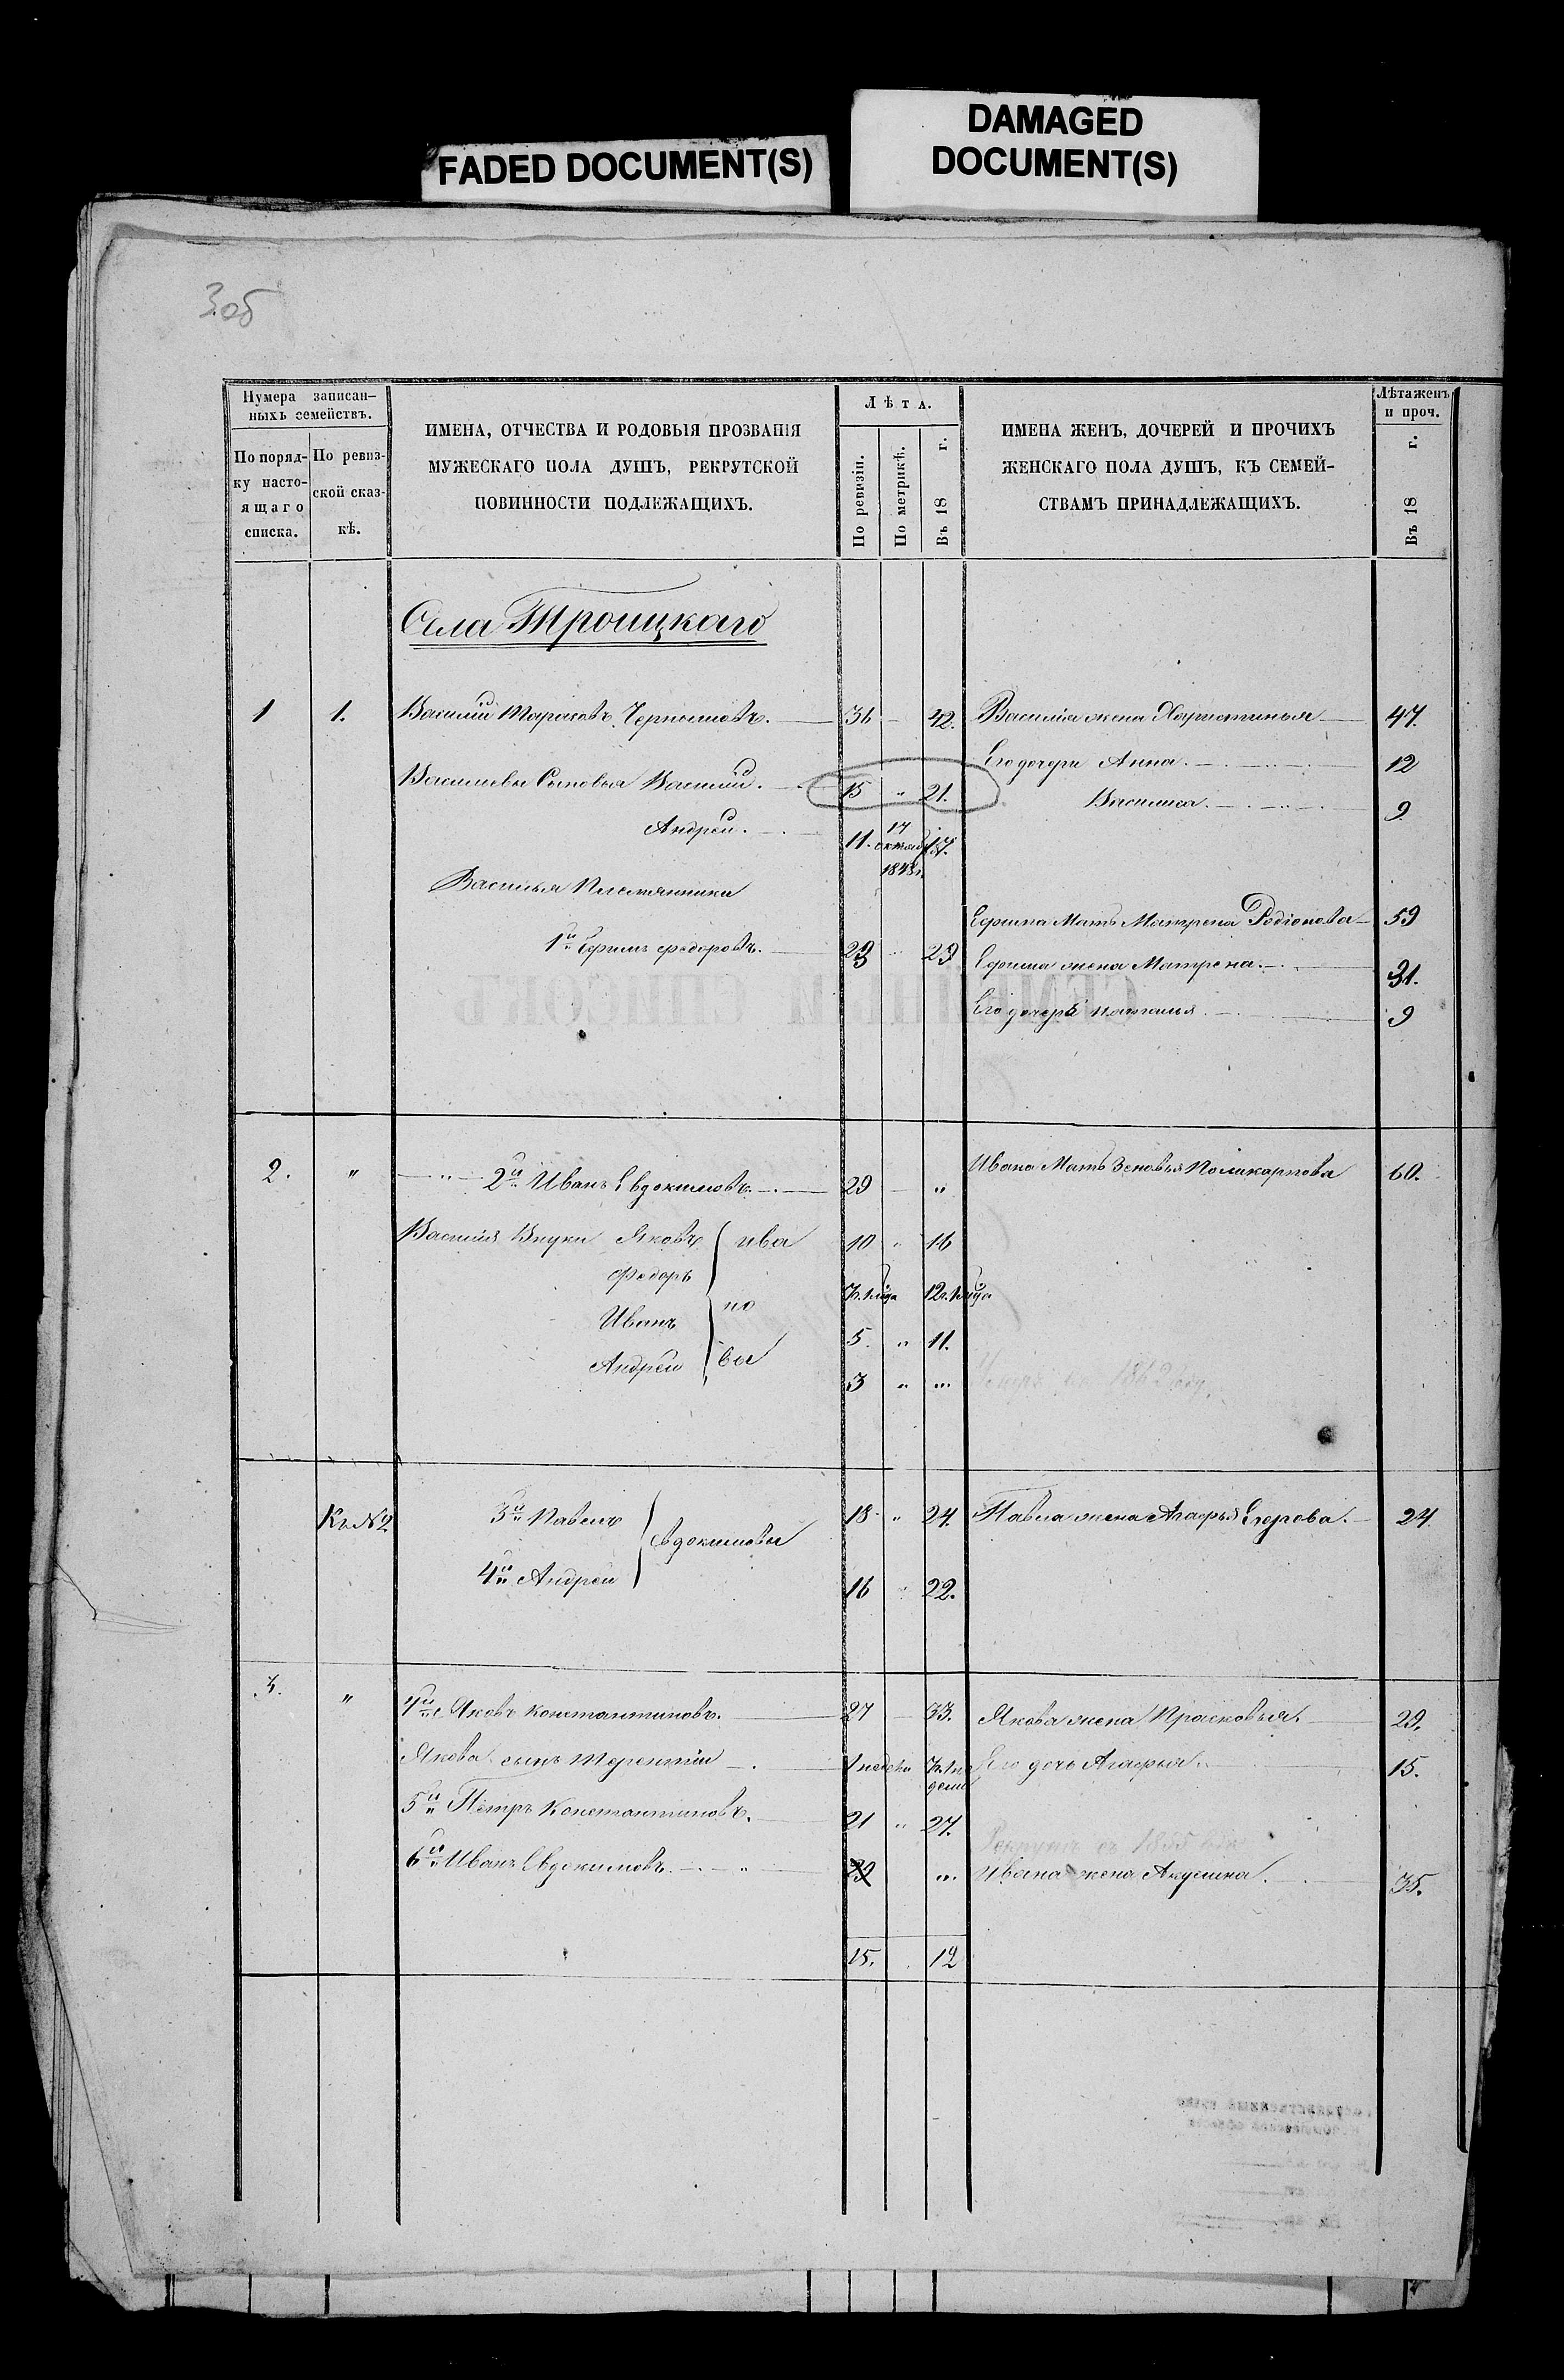 FADED DOCUMENT(S)
DAMAGED
DOCUMENT(S)
3 об
Нумера записан-
ныхъ семействъ.
По поряд-
ку насто-
ящаго
списка.
По ревиз-
ской сказ-
кѣ.
ИМЕНА, ОТЧЕСТВА И РОДОВЫЯ ПРОЗВАНІЯ
МУЖЕСКАГО ПОЛА ДУШЪ, РЕКРУТСКОЙ
ПОВИННОСТИ ПОДЛЕЖАЩИХЪ.
Лѣта.
По ревизіи.
По метрикѣ.
Въ 18 г.
ИМЕНА ЖЕНЪ, ДОЧЕРЕЙ И ПРОЧИХЪ
ЖЕНСКАГО ПОЛА ДУШЪ, КЪ СЕМЕЙ-
СТВАМЪ ПРИНАДЛЕЖАЩИХЪ.
Лѣта женъ
и проч.
Въ 18 г.
Села Троицкаго
1 1. Василий Тарасовъ 36 — 42. Василія жена 47.
Его дочери Анна. 12
Васильевы Сыновья Василий. 15 „ 21.
Василиса. 9
Андрей. 11. 17 октяб 1843г. 17.
Василья Племянники
Ефима Мать Матрена Родіонова 59
1й Ефимъ Федоровъ. 23 29 Ефима жена Матрена. 31.
Его дочерь Наталья 9
2. „ 2й Иванъ Евдокимовъ. 29 — „ Ивана Мать Зеновья Поликарпова 60.
Василія Внуки Яковъ 10 „ 16
Федоръ
Иванъ
Андрей
Ива
но
вы
5. „ 11.
3 „ „
1862 году.
Къ №2 3й Павелъ 18 „ 24. Павла жена Агафья Егорова. 24
Евдокимовы
4й Андрей 16 „ 22.
3. „ 4й Яковъ Константиновъ. 27 — 33. Якова жена Прасковья. 29.
Якова сынъ Терентий 1 недели Его дочь Агафья. 15.
5й Петръ Константиновъ. 21 „ 27.
Рекрутъ съ 1855
6й Иванъ Евдокимовъ. 29 „ Ивана жена Акулина. 35.
15. 12